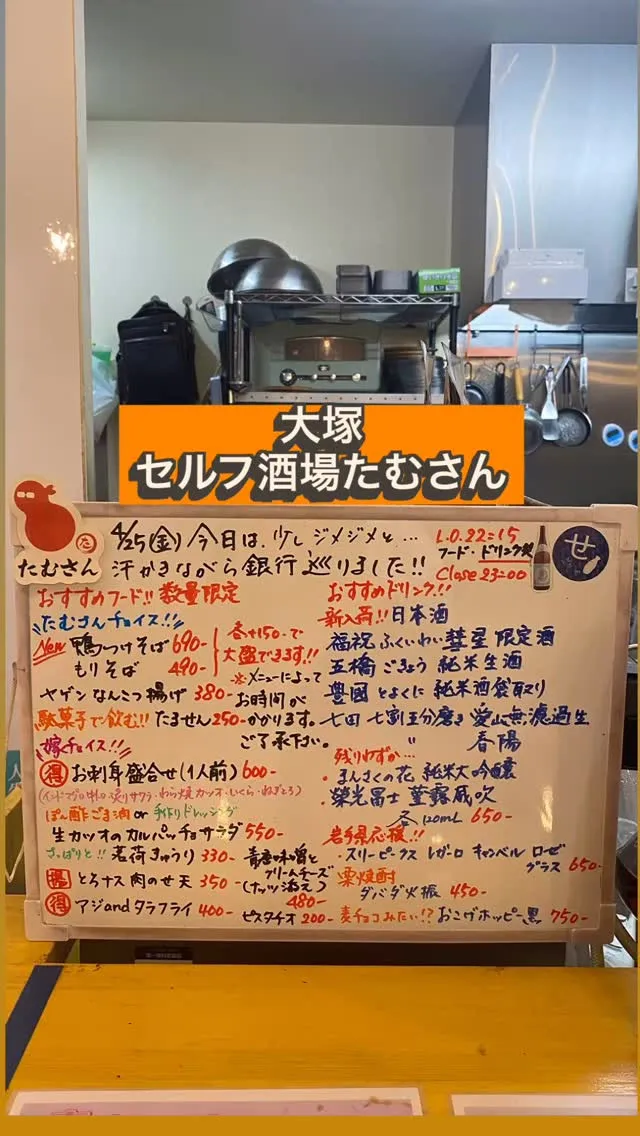 大塚
セルフ酒場たむさん
たむさん
4/25(金) 今日は、少しジメジメと…
汗かきながら銀行巡りました!!
L.O.22=15
フード・ドリンク共
Close 23=00
せ
おすすめフード!! 数量限定
たむさんチョイス!!
New 鴨つけそば 690-
もりそば 490-
各+150-で
大盛できます!!
ヤゲンなんこつ揚げ 380-
※メニューによって
お時間が
かかります。
ご了承下さい。
駄菓子で飲む!! たません 250-
嫁チョイス!!
得 お刺身盛合せ(1人前) 600-
ぽん酢ごま油 or 手作りドレッシング
生カツオのカルパッチョサラダ 550-
さっぱりと!! 茗荷きゅうり 330-
とろナス肉のせ天 350-
得 アジandタラフライ 400-
青唐味噌と
クリームチーズ
(ナッツ添え)
480-
ピスタチオ 200-
おすすめドリンク!!
新入荷!! 日本酒
福祝 ふくいわい 彗星 限定酒
五橋 ごきょう 純米生酒
豊國 とよくに 純米酒袋取り
七田 七割五分磨き 愛山無濾過生
〃 春陽
残りわずか…
・まんさくの花 純米大吟醸
・榮光冨士 蛍露風吹
各120mL 650-
岩手県応援!!
・スリーピークス レガーロ キャンベル ロゼ
グラス 650-
栗焼酎
ダバダ火振 450-
麦チョコみたい!? おこげホッピー黒 750-